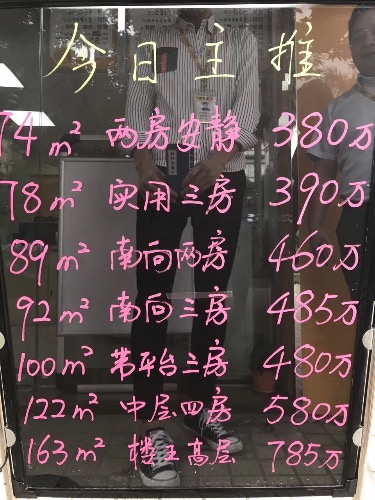 今日主推
74m² 两房安静 380万
78m² 实用三房 390万
89m² 南向两房 460万
92m² 南向三房 485万
100m² 带平台三房 480万
122m² 中层四房 580万
163m² 楼王高层 785万